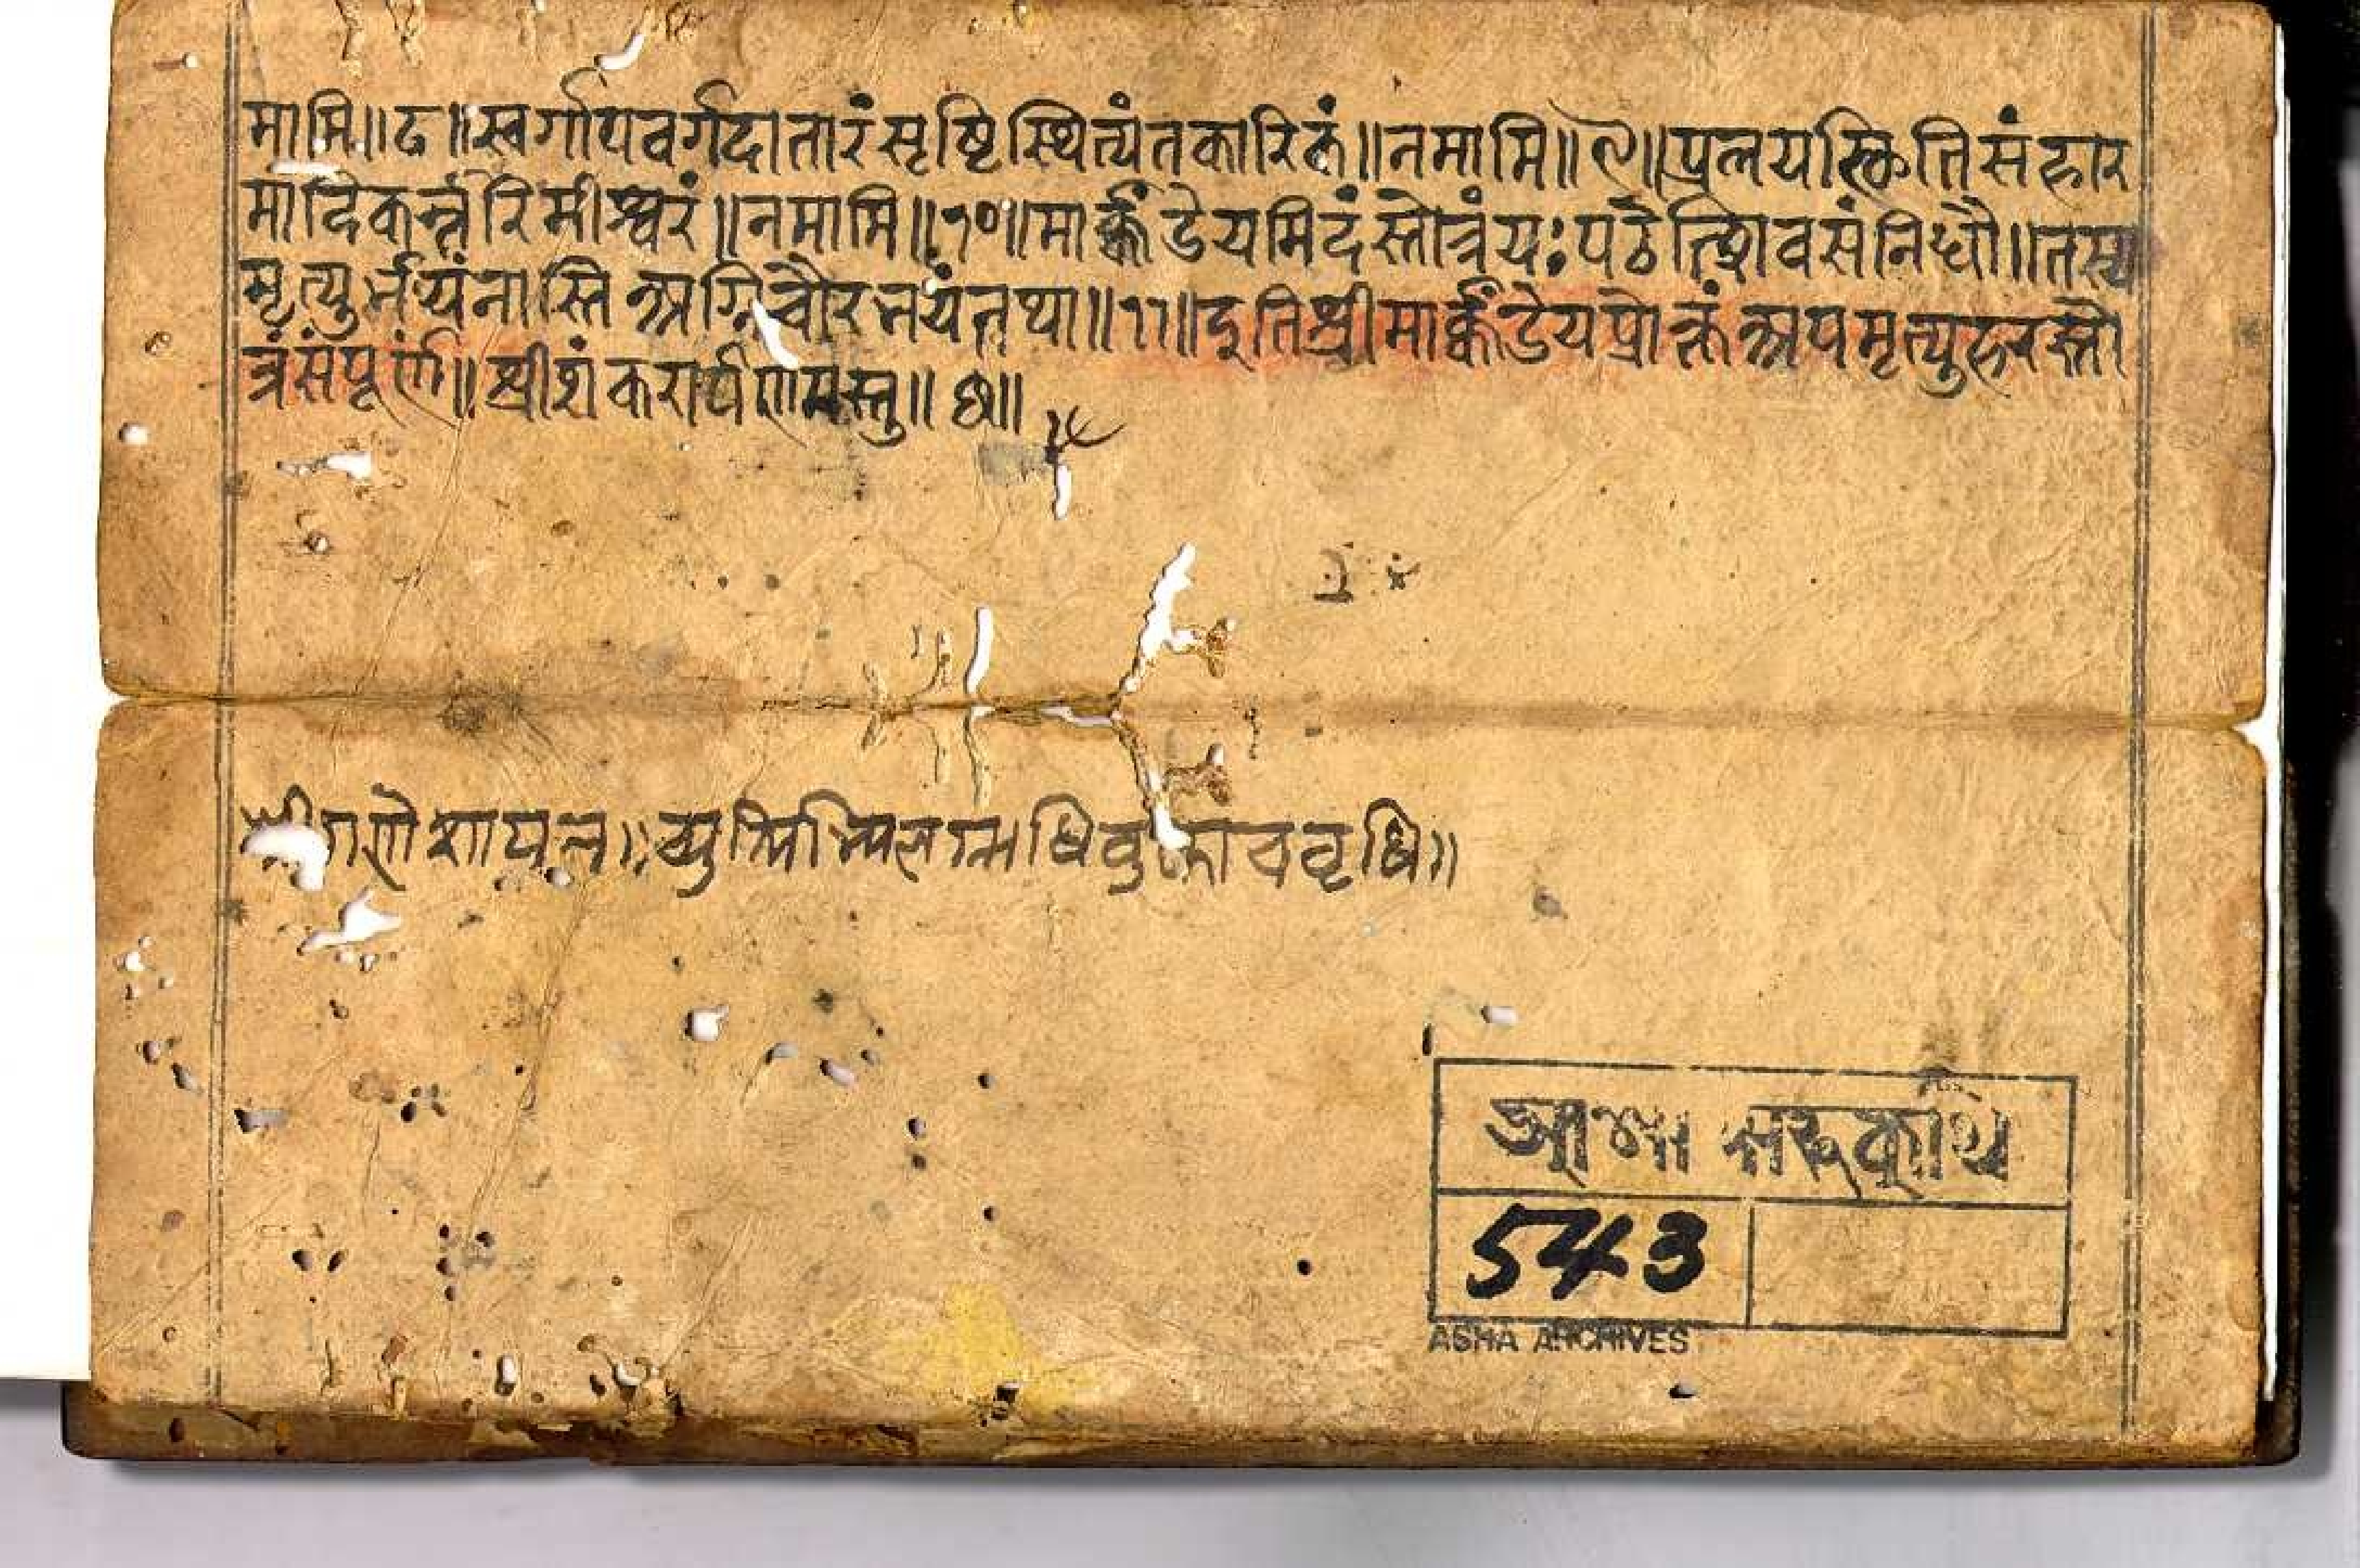 मामि॥८॥स्वर्गापवर्गदातारंसृष्टिस्थित्यंतकारिकं॥नमामि॥९॥प्रलयस्थितिसंहार
मादिकर्त्तारमीश्वरं॥नमामि॥१०॥मार्क्कंडेयमिदंस्तोत्रंयःपठेत्शिवसंनिधौ॥तस्य
मृत्युर्भयंनास्तिअग्निचौरभयंतथा॥११॥इतिश्रीमार्क्कंडेयप्रोक्तंअपमृत्युहरस्तो
त्रंसंपूर्णं॥श्रीशंकरार्पणमस्तु॥छ॥
श्रीगणेशायन॥
543
ASHA ARCHIVES